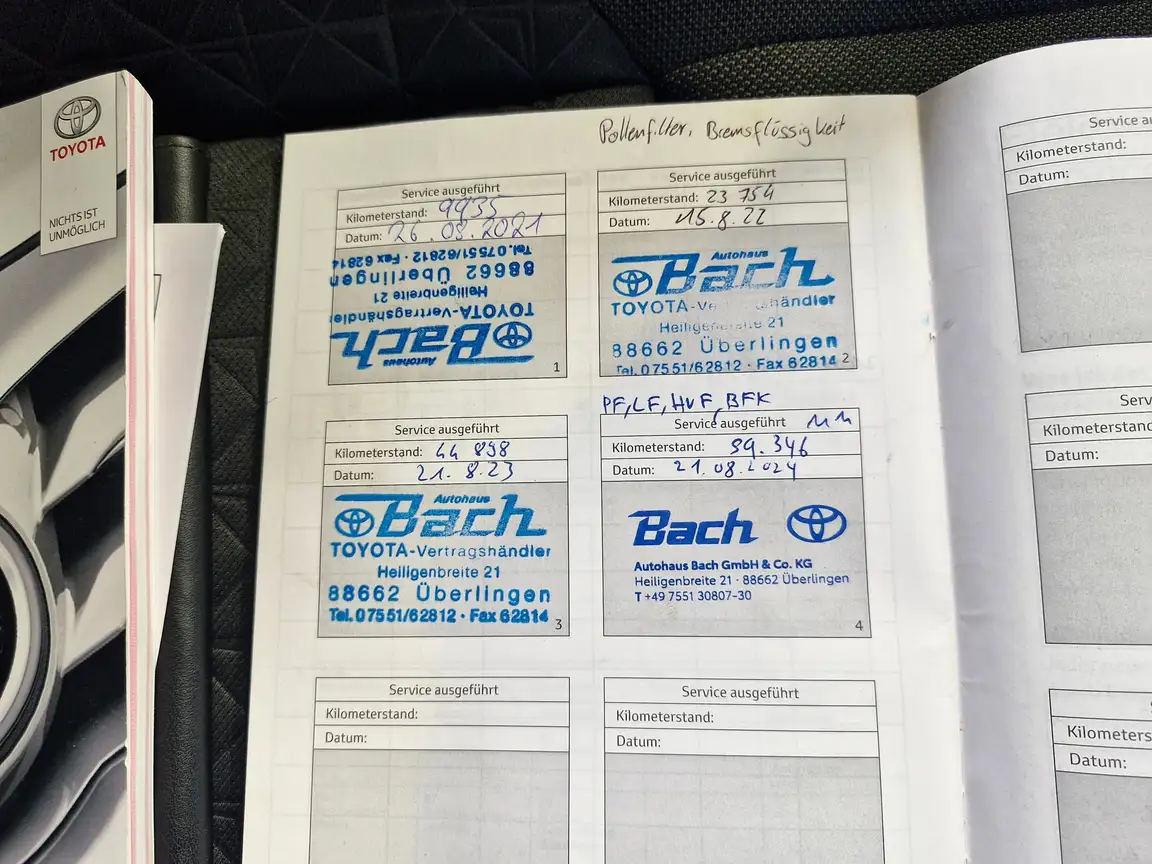 TOYOTA
NICHTS IST
UNMÖGLICH
Pollenfilter, Bremsflüssigkeit
Service ausgeführt
Kilometerstand: 9935
Datum: 26.08.2021
Autohaus
Bach
TOYOTA-Vertragshändler
Heiligenbreite 21
88662 Überlingen
Tel. 07551/62812 · Fax 62814
1
Service ausgeführt
Kilometerstand: 23 754
Datum: 15.8.22
Autohaus
Bach
TOYOTA-Ve händler
Heiligenbreite 21
88662 Überlingen
Tel. 07551/62812 · Fax 62814
2
Service ausgeführt
Kilometerstand: 44 898
Datum: 21.8.23
Autohaus
Bach
TOYOTA-Vertragshändler
Heiligenbreite 21
88662 Überlingen
Tel. 07551/62812 · Fax 62814
3
PF, LF, HVF, BFK
Service ausgeführt
Kilometerstand: 59.346
Datum: 21.08.2024
Bach
Autohaus Bach GmbH & Co. KG
Heiligenbreite 21 · 88662 Überlingen
T +49 7551 30807-30
4
Service ausgeführt
Kilometerstand:
Datum:
Service ausgeführt
Kilometerstand:
Datum:
Service au
Kilometerstand:
Datum:
Serv
Kilometerstand
Datum:
S
Kilometers
Datum: